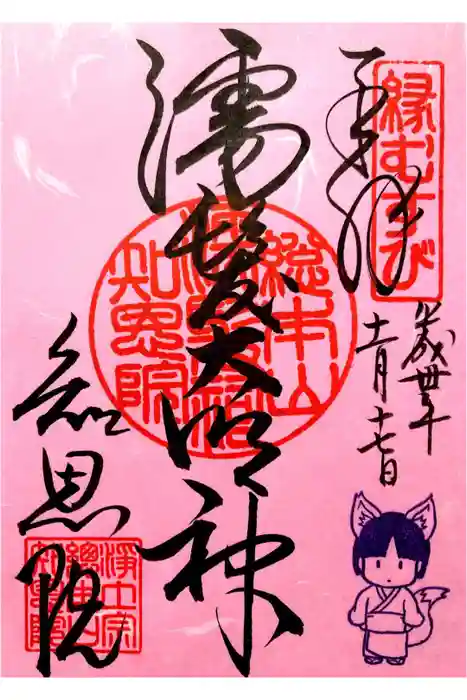 奉拝
縁むすび
平成丗年
十一月十七日
濡髪大明神
総本山
知恩院
知恩院
浄土宗
總本山
知恩院